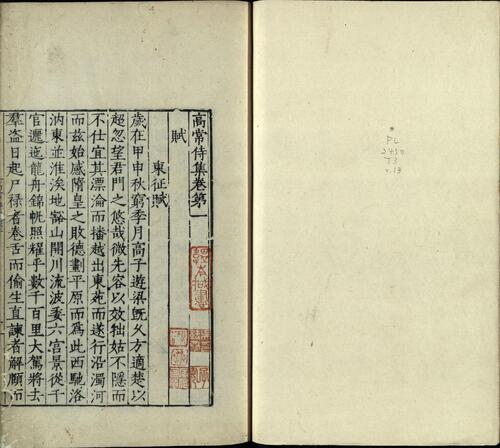 高常侍集卷第一
賦
東征賦
歲在甲申秋窮季月高子遊梁旣久方適楚以
超忽望君門之悠哉微先容以效拙姑不隱而
不仕宜其漂淪而播越出東苑而遂行沿濁河
而茲始感隋皇之敗德劃平原而為此西馳洛
汭東並淮涘地豁山開川流波委六宮景從千
官邐迤龍舟錦帆照耀乎數千百里大駕將去
羣盜日起尸祿者卷舌而偷生直諫者解頤而
PL
2450
T3
v.13